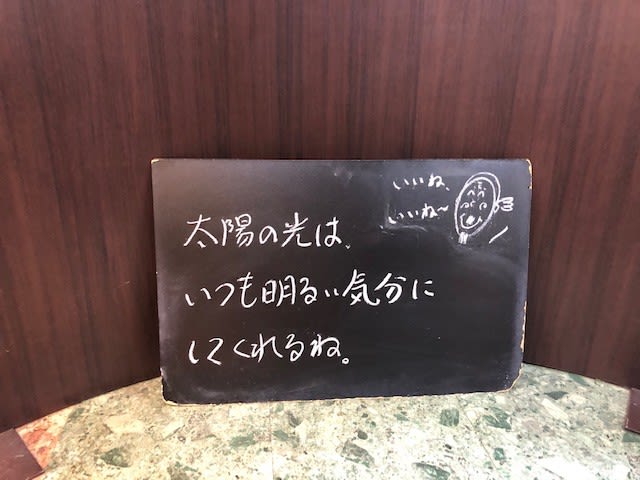 太陽の光は、
いつも明るい気分に
してくれるね。
いいね、
いいね〜